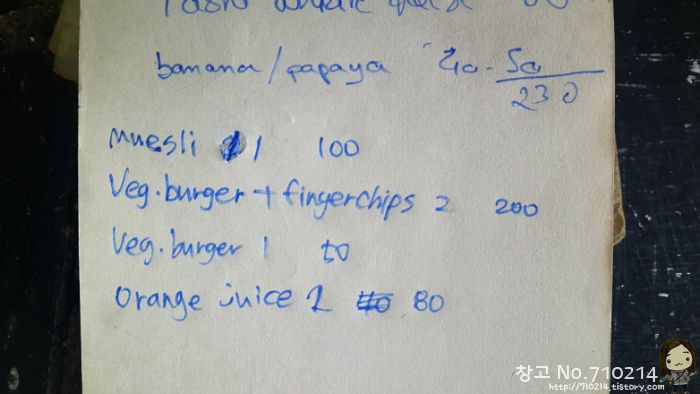 banana/papaya 40 - 50
230
muesli 1 100
Veg.burger + fingerchips 2 200
Veg.burger 1 50
Orange juice 2 80
창고 No.710214
http://710214.tistory.com